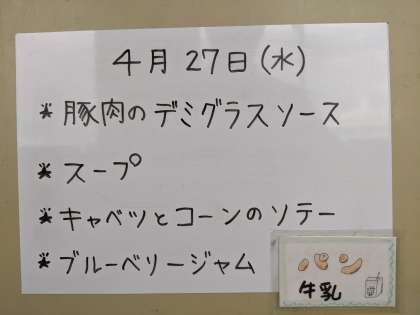 4月27日(水)
* 豚肉のデミグラスソース
* スープ
* キャベツとコーンのソテー
* ブルーベリージャム
パン
牛乳